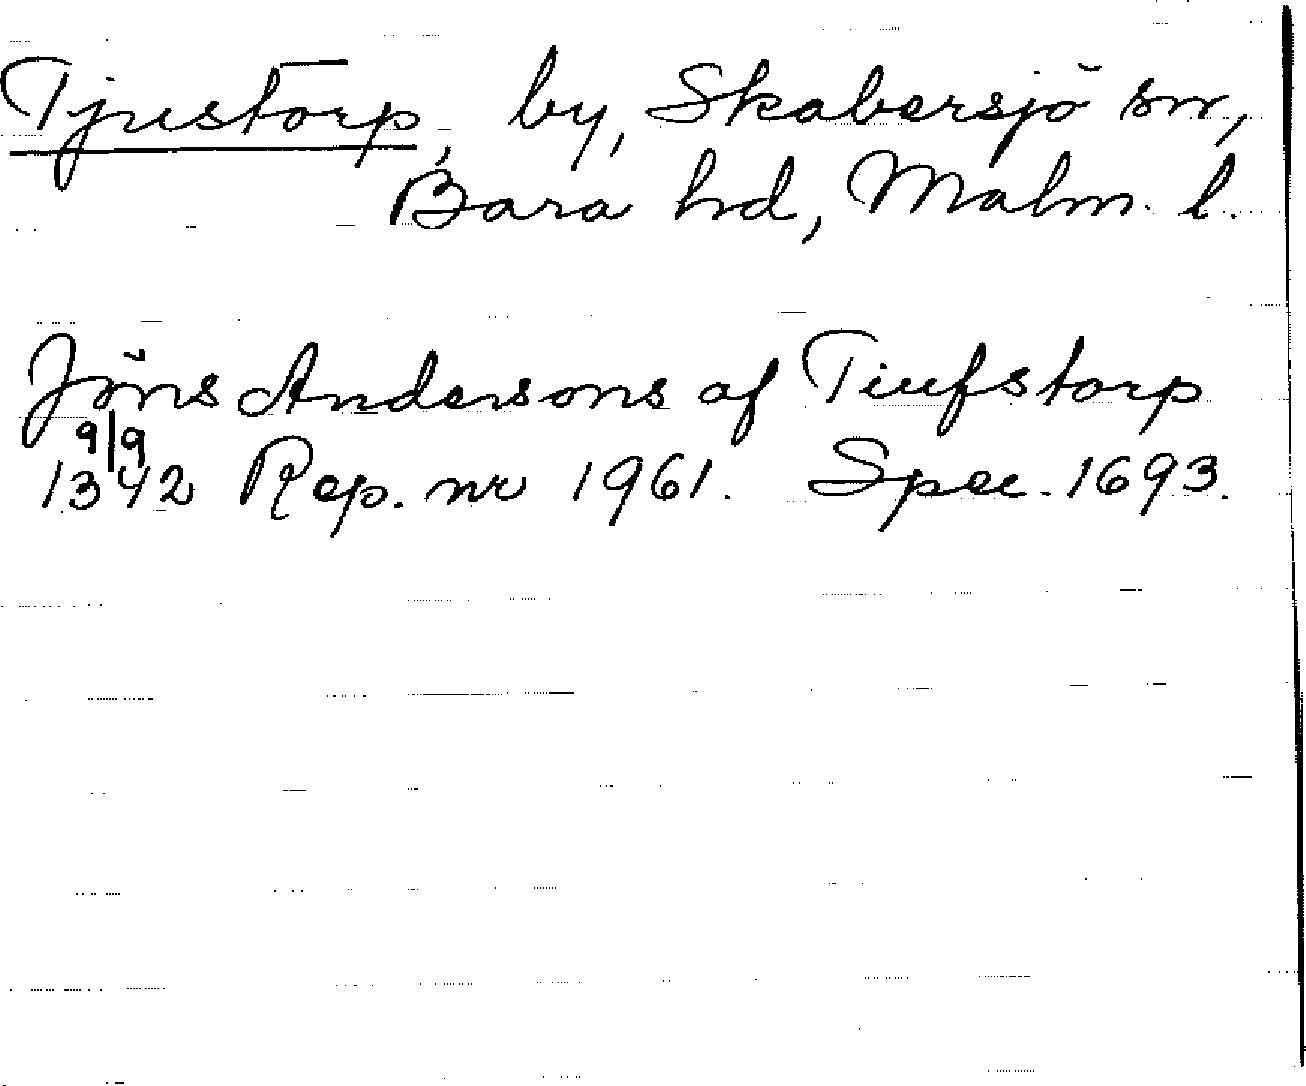 Tjustorp, by, Skabersjö sn,
Bara hd, Malm. l.
Jöns Andersons af Tiufstorp
9/9
1342 Rep. nr 1961. Spec. 1693.